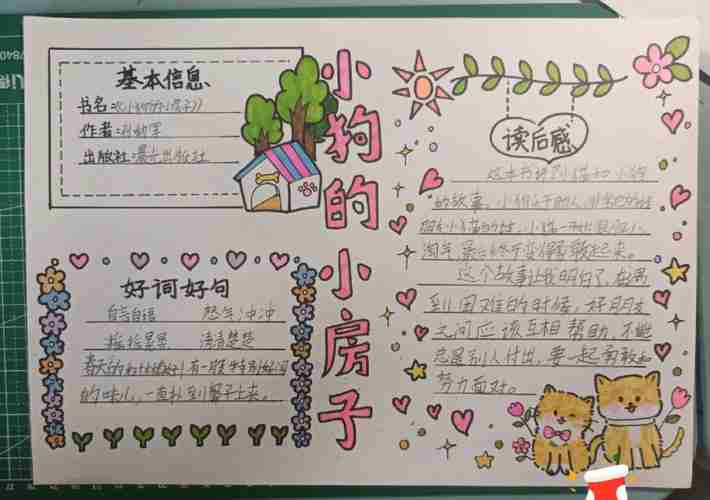 小狗的小房子
基本信息
书名:《小狗的小房子》
作者:孙幼军
出版社:晨光出版社
好词好句
自言自语 怒气冲冲
摇摇晃晃 清清楚楚
有一股特别好闻
的味儿,一直扑到鼻子上来。
读后感
这本书讲了小猫和小狗
的故事。小狗
淘气,最后终于变得勇敢起来。
这个故事让我明白了,在遇
到困难的时候,好朋友
之间应该互相帮助,不能
总是别人付出,要一起勇敢和
努力面对。